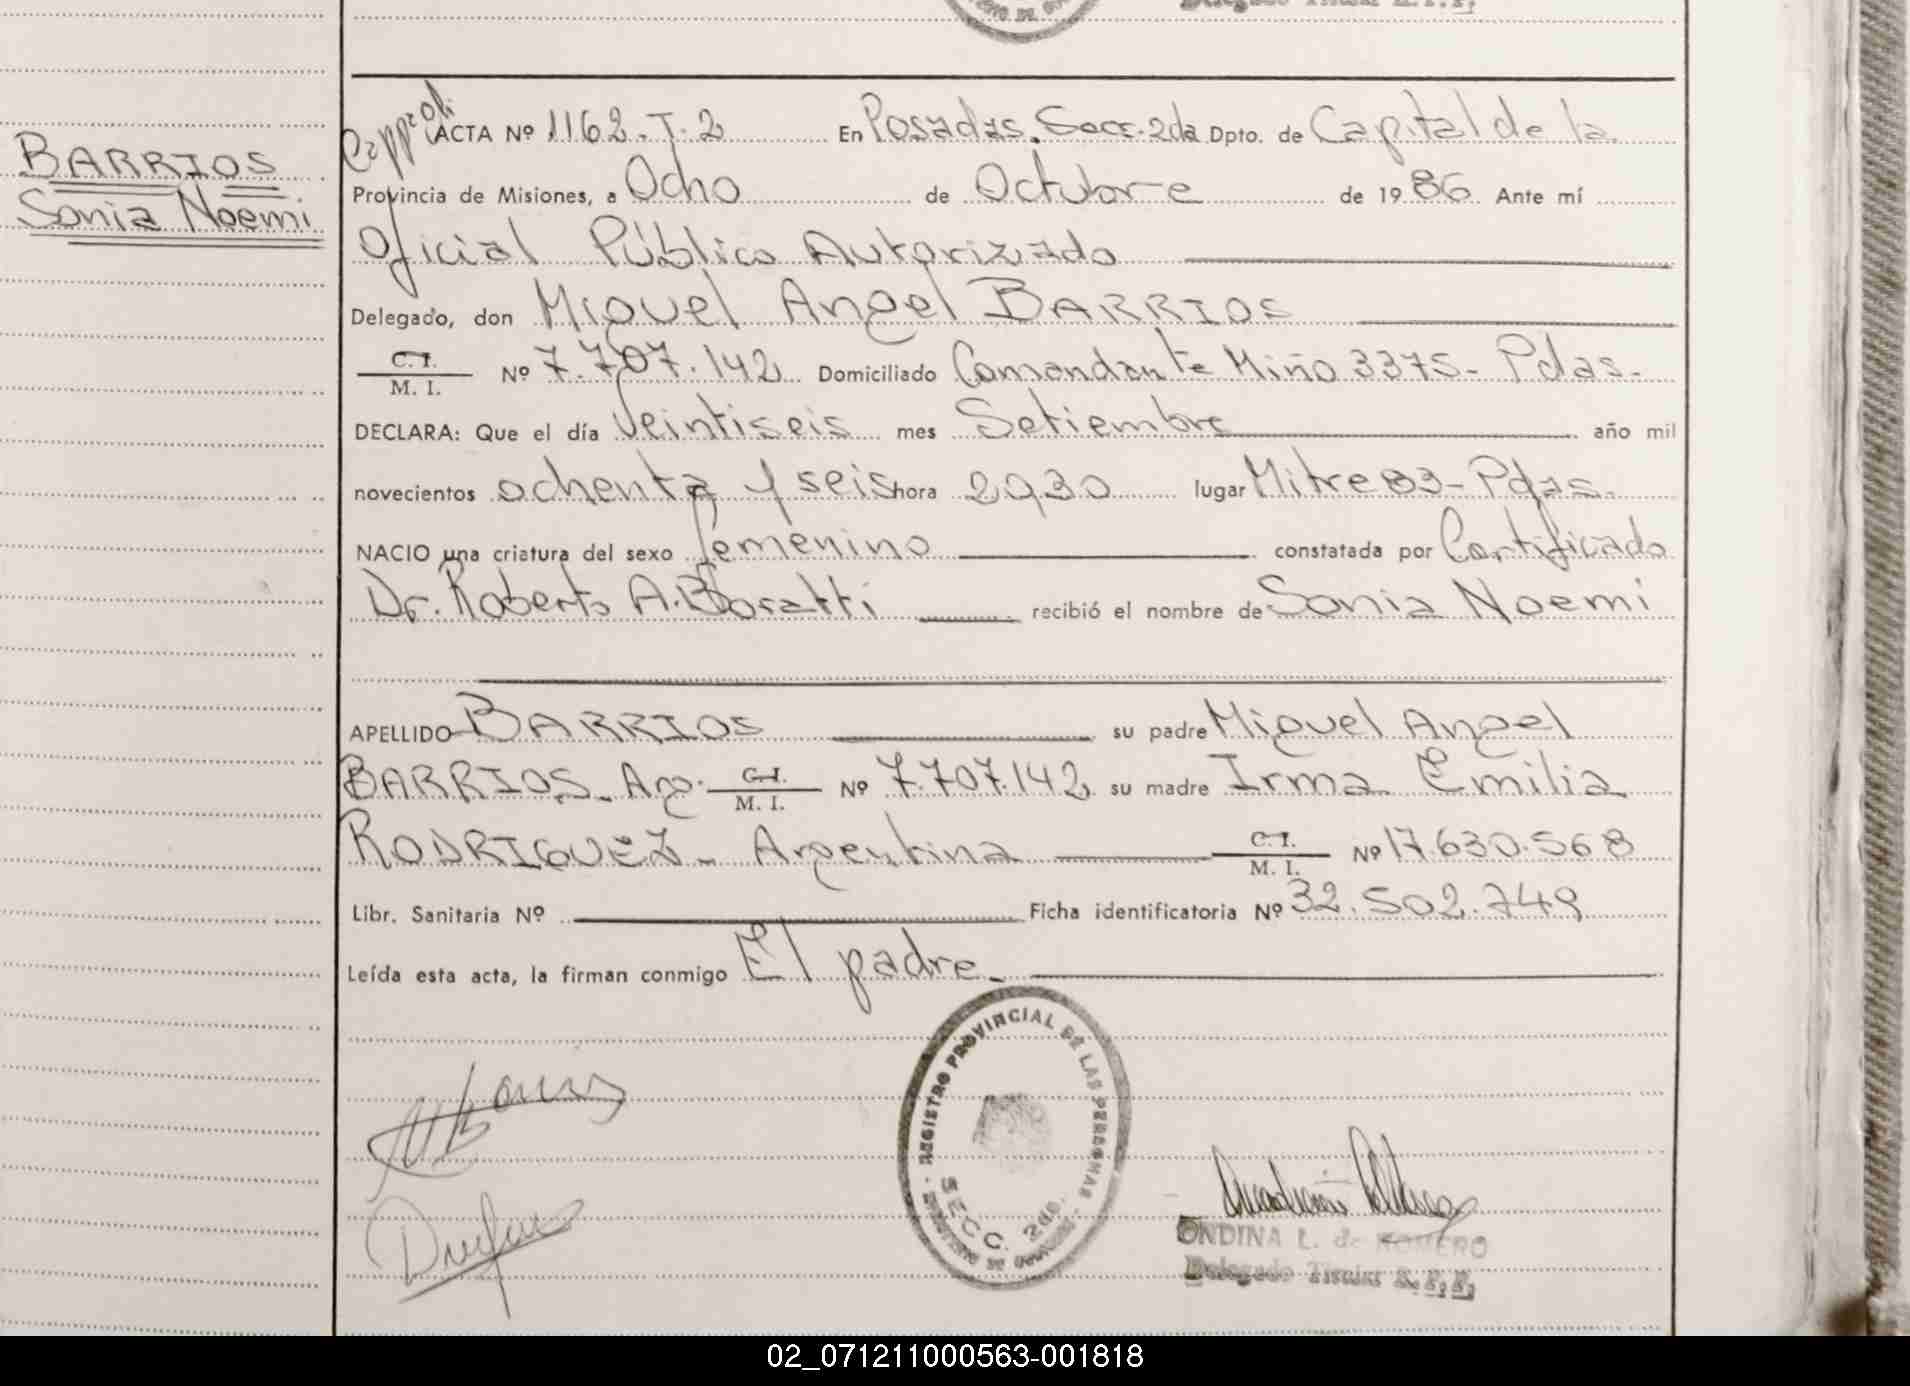 BARRIOS
Sonia Noemi
ACTA Nº 1162. T. 2 En Posadas. Secc. 2da Dpto. de Capital de la
Provincia de Misiones, a Ocho de Octubre de 1986 Ante mí
Oficial Público Autorizado
Delegado, don Miguel Angel BARRIOS
C. I.
M. I. Nº 7.707.142 Domiciliado Comandante Miño 3375 - Pdas.
DECLARA: Que el día Veintiseis mes Setiembre año mil
novecientos ochenta y seis hora lugar Mitre 83 - Pdas.
NACIO una criatura del sexo femenino constatada por Certificado
Dr. Roberto A. recibió el nombre de Sonia Noemi
APELLIDO BARRIOS su padre Miguel Angel
BARRIOS - Arg. C. I.
M. I. Nº 7.707.142 su madre Irma Emilia
RODRIGUEZ - Argentina C. I.
M. I. Nº 17.630.568
Libr. Sanitaria Nº Ficha identificatoria Nº 32.502.749
Leída esta acta, la firman conmigo El padre
REGISTRO PROVINCIAL DE LAS PERSONAS
SECC. 2da.
ONDINA L. de ROMERO
Delegado Titular R. P. P.
02_071211000563-001818